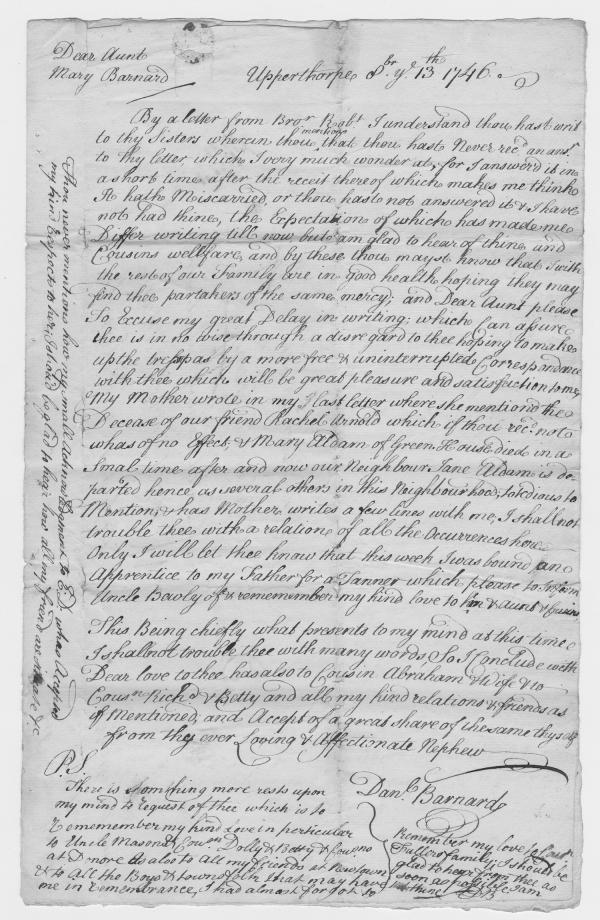 Dear Aunt
Mary Barnard
Upperthorpe 8br. ye. 13th 1746
By a letter from Bror Robt. I understand thou hast writ
to thy Sisters wherein thou mentions that thou hast Never recd. an ansr.
to thy letter, which I very much wonder at, for I answer'd it in
a short time after the receit thereof which makes me think
It hath Miscarried, or thou hast not answered it & I have
not had thine, the Expectation of which has made me
Differ writing till now but am glad to hear of thine and
Cousins wellfare, and by these thou mayst know that I with
the rest of our Family are in Good health hoping they may
find thee partakers of the same mercy; and Dear Aunt please
To Excuse my great Delay in writing; which I can assure
thee is in no wise through a disregard to thee hoping to make
up the trespas by a more free & uninterrupted Correspondance
with thee which will be great pleasure and satisfaction to me,
My Mother wrote in my last letter where she mentiond the
Decease of our friend Rachel Arnold which if thou recd. not
whas of no Effect, & Mary Aldam of Green House died in a
Smal time after and now our Neighbour Jane Aldam is de-
parted hence, as several others in this Neighbourhood, to tedious to
Mention, & has Mother writes a few lines with me, I shall not
trouble thee with a relation of all the Occurrences here
Only I will let thee know that this week I was bound an
Apprentice to my Father for a Tanner which please to Inform
Uncle Bowly of & remember my kind love to him & Aunt & Cousins
This Being chiefly what presents to my mind at this time
I shall not trouble thee with many words, So I Conclude with
Dear love to thee has also to Cousin Abraham & Wife & to
Cousn. Richd. & Betty and all my kind relations & friends as
if Mentioned, and Accept of a great share of the same thyself
from thy ever Loving & Affectionate Nephew
Danl. Barnard
P.S.
There is something more rests upon
my mind to request of thee which is to
Rememember my kind love in particular
to Uncle Masons & Cousns Dolly & Betty &
at as also to All my friends at
& to All the Boys & townsfolk that may have
me in remembrance, I had almost forgot to
remember my love to
Fullers family; I should be
glad to hear from thee as
soon as possible I am
thine DB
Thou never mentions how my small Acknowledgment to E.D. whas Accepted
my kind respects to her; I should be glad to hear how all my friends are in &c